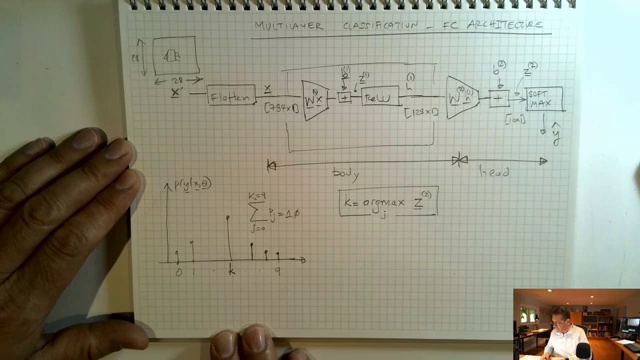 MULTILAYER CLASSIFICATION - FC ARCHITECTURE
28
28
x
Flatten
x
[784x1]
W⁽¹⁾x
+
z⁽¹⁾
ReLU
h⁽¹⁾
[128x1]
W⁽²⁾h⁽¹⁾
b⁽²⁾
+
z⁽²⁾
SOFT
MAX
ŷ
body
head
p(y|x,θ)
K=9
Σ Pj = 1.0
j=0
K = argmax z⁽²⁾
j
0 1 k 9